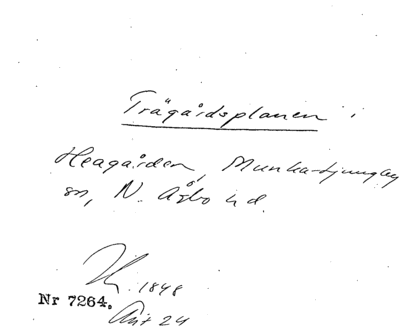 Trägårdsplanen i
Heagården, Munka-Ljungby
sn, N. Åsbo hd.
1848
Nr 7264.
Aug 24